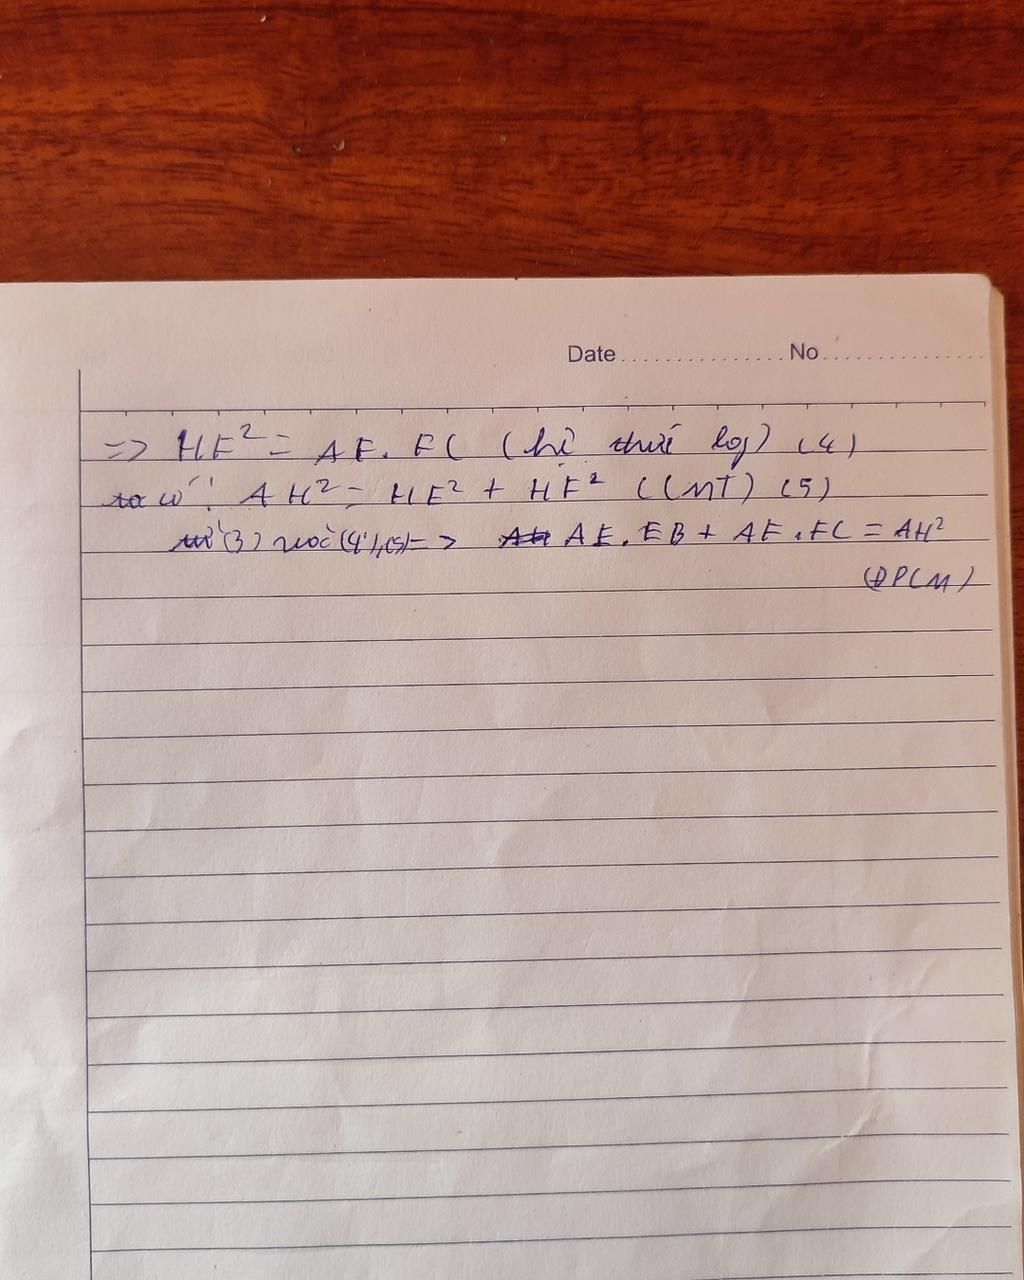 Date ............... No ...............
=> HF² = AF. FC (hệ thức lg) (4)
ta có: AH² = HE² + HF² (CMT) (5)
từ (3) và (4), (5) => AE. EB + AF. FC = AH²
(ĐPCM)